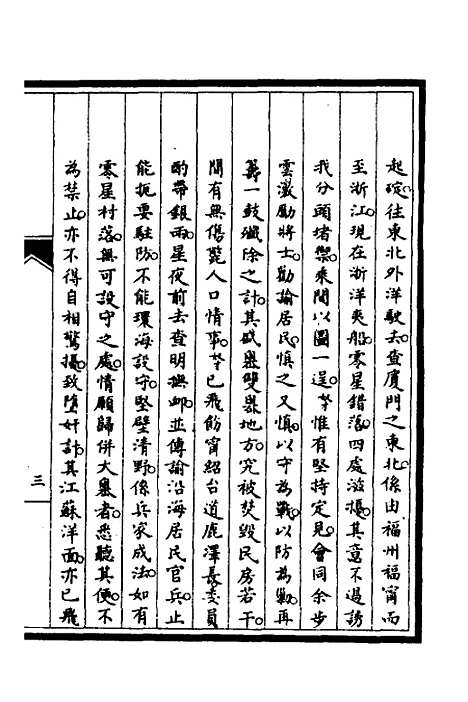 起碇往東北外洋駛去查廈門之東北係由福州福甯而
至浙江現在浙洋夷船零星錯落四處游擾其意不過誘
我分頭堵禦乘間以圖一逞等惟有堅持定見會同余步
雲激勵將士勸諭居民慎之又慎以守為戰以防為勦再
籌一鼓殲除之計其盛嶴雙嶴地方究被焚毀民房若干
間有無傷斃人口情事等已飛飭甯紹台道鹿澤長委員
酌帶銀兩星夜前去查明撫卹並傳諭沿海居民官兵止
能扼要駐防不能環海設守堅壁清野係兵家成法如有
零星村落無可設守之處情願歸併大嶴者悉聽其便不
為禁止亦不得自相驚擾致墮奸計其江蘇洋面亦已飛
三